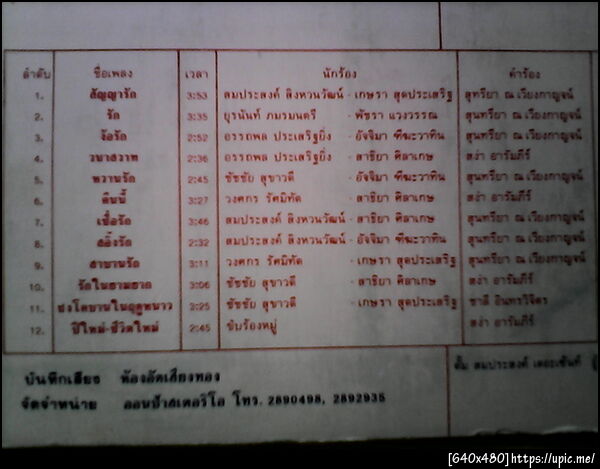 ลำดับ ชื่อเพลง เวลา นักร้อง คำร้อง
1. สัญญารัก 3:53 สมประสงค์ สิงหวนวัฒน์ - เกษรา สุดประเสริฐ สุนทรียา ณ เวียงกาญจน์
2. รัก 3:35 ยุรนันท์ ภมรมนตรี - พัชรา แวงวรรณ สุนทรียา ณ เวียงกาญจน์
3. ง้อรัก 2:52 อรรถพล ประเสริฐยิ่ง - อัจจิมา สุนทรียา ณ เวียงกาญจน์
4. วาสวาท 2:36 อรรถพล ประเสริฐยิ่ง - สาธิยา ศิลาเกษ สง่า อารัมภีร์
5. หวานรัก 2:45 ชัชชัย สุขาวดี - อัจจิมา สุนทรียา ณ เวียงกาญจน์
6. คืนนี้ 3:27 วงศกร รัศมิทัต - สาธิยา ศิลาเกษ สง่า อารัมภีร์
7. เชื่อรัก 3:46 สมประสงค์ สิงหวนวัฒน์ - สาธิยา ศิลาเกษ สุนทรียา ณ เวียงกาญจน์
8. 2:32 สมประสงค์ สิงหวนวัฒน์ - อัจจิมา สุนทรียา ณ เวียงกาญจน์
9. สาบานรัก 3:11 วงศกร รัศมิทัต - เกษรา สุดประเสริฐ สุนทรียา ณ เวียงกาญจน์
10. รักในยามยาก 3:06 ชัชชัย สุขาวดี - สาธิยา ศิลาเกษ สง่า อารัมภีร์
11. ชงโคบานในฤดูหนาว 3:25 ชัชชัย สุขาวดี - เกษรา สุดประเสริฐ ชาลี อินทรวิจิตร
12. ปีใหม่-ชีวิตใหม่ 2:45 ขับร้องหมู่ สง่า อารัมภีร์
บันทึกเสียง ห้องอัดเสียงทอง
จัดจำหน่าย ออนป้าสเตอริโอ โทร. 2890498, 2892935
ตั้ม สมประสงค์ เดอะเซ้นท์
[640x480]https://upic.me/